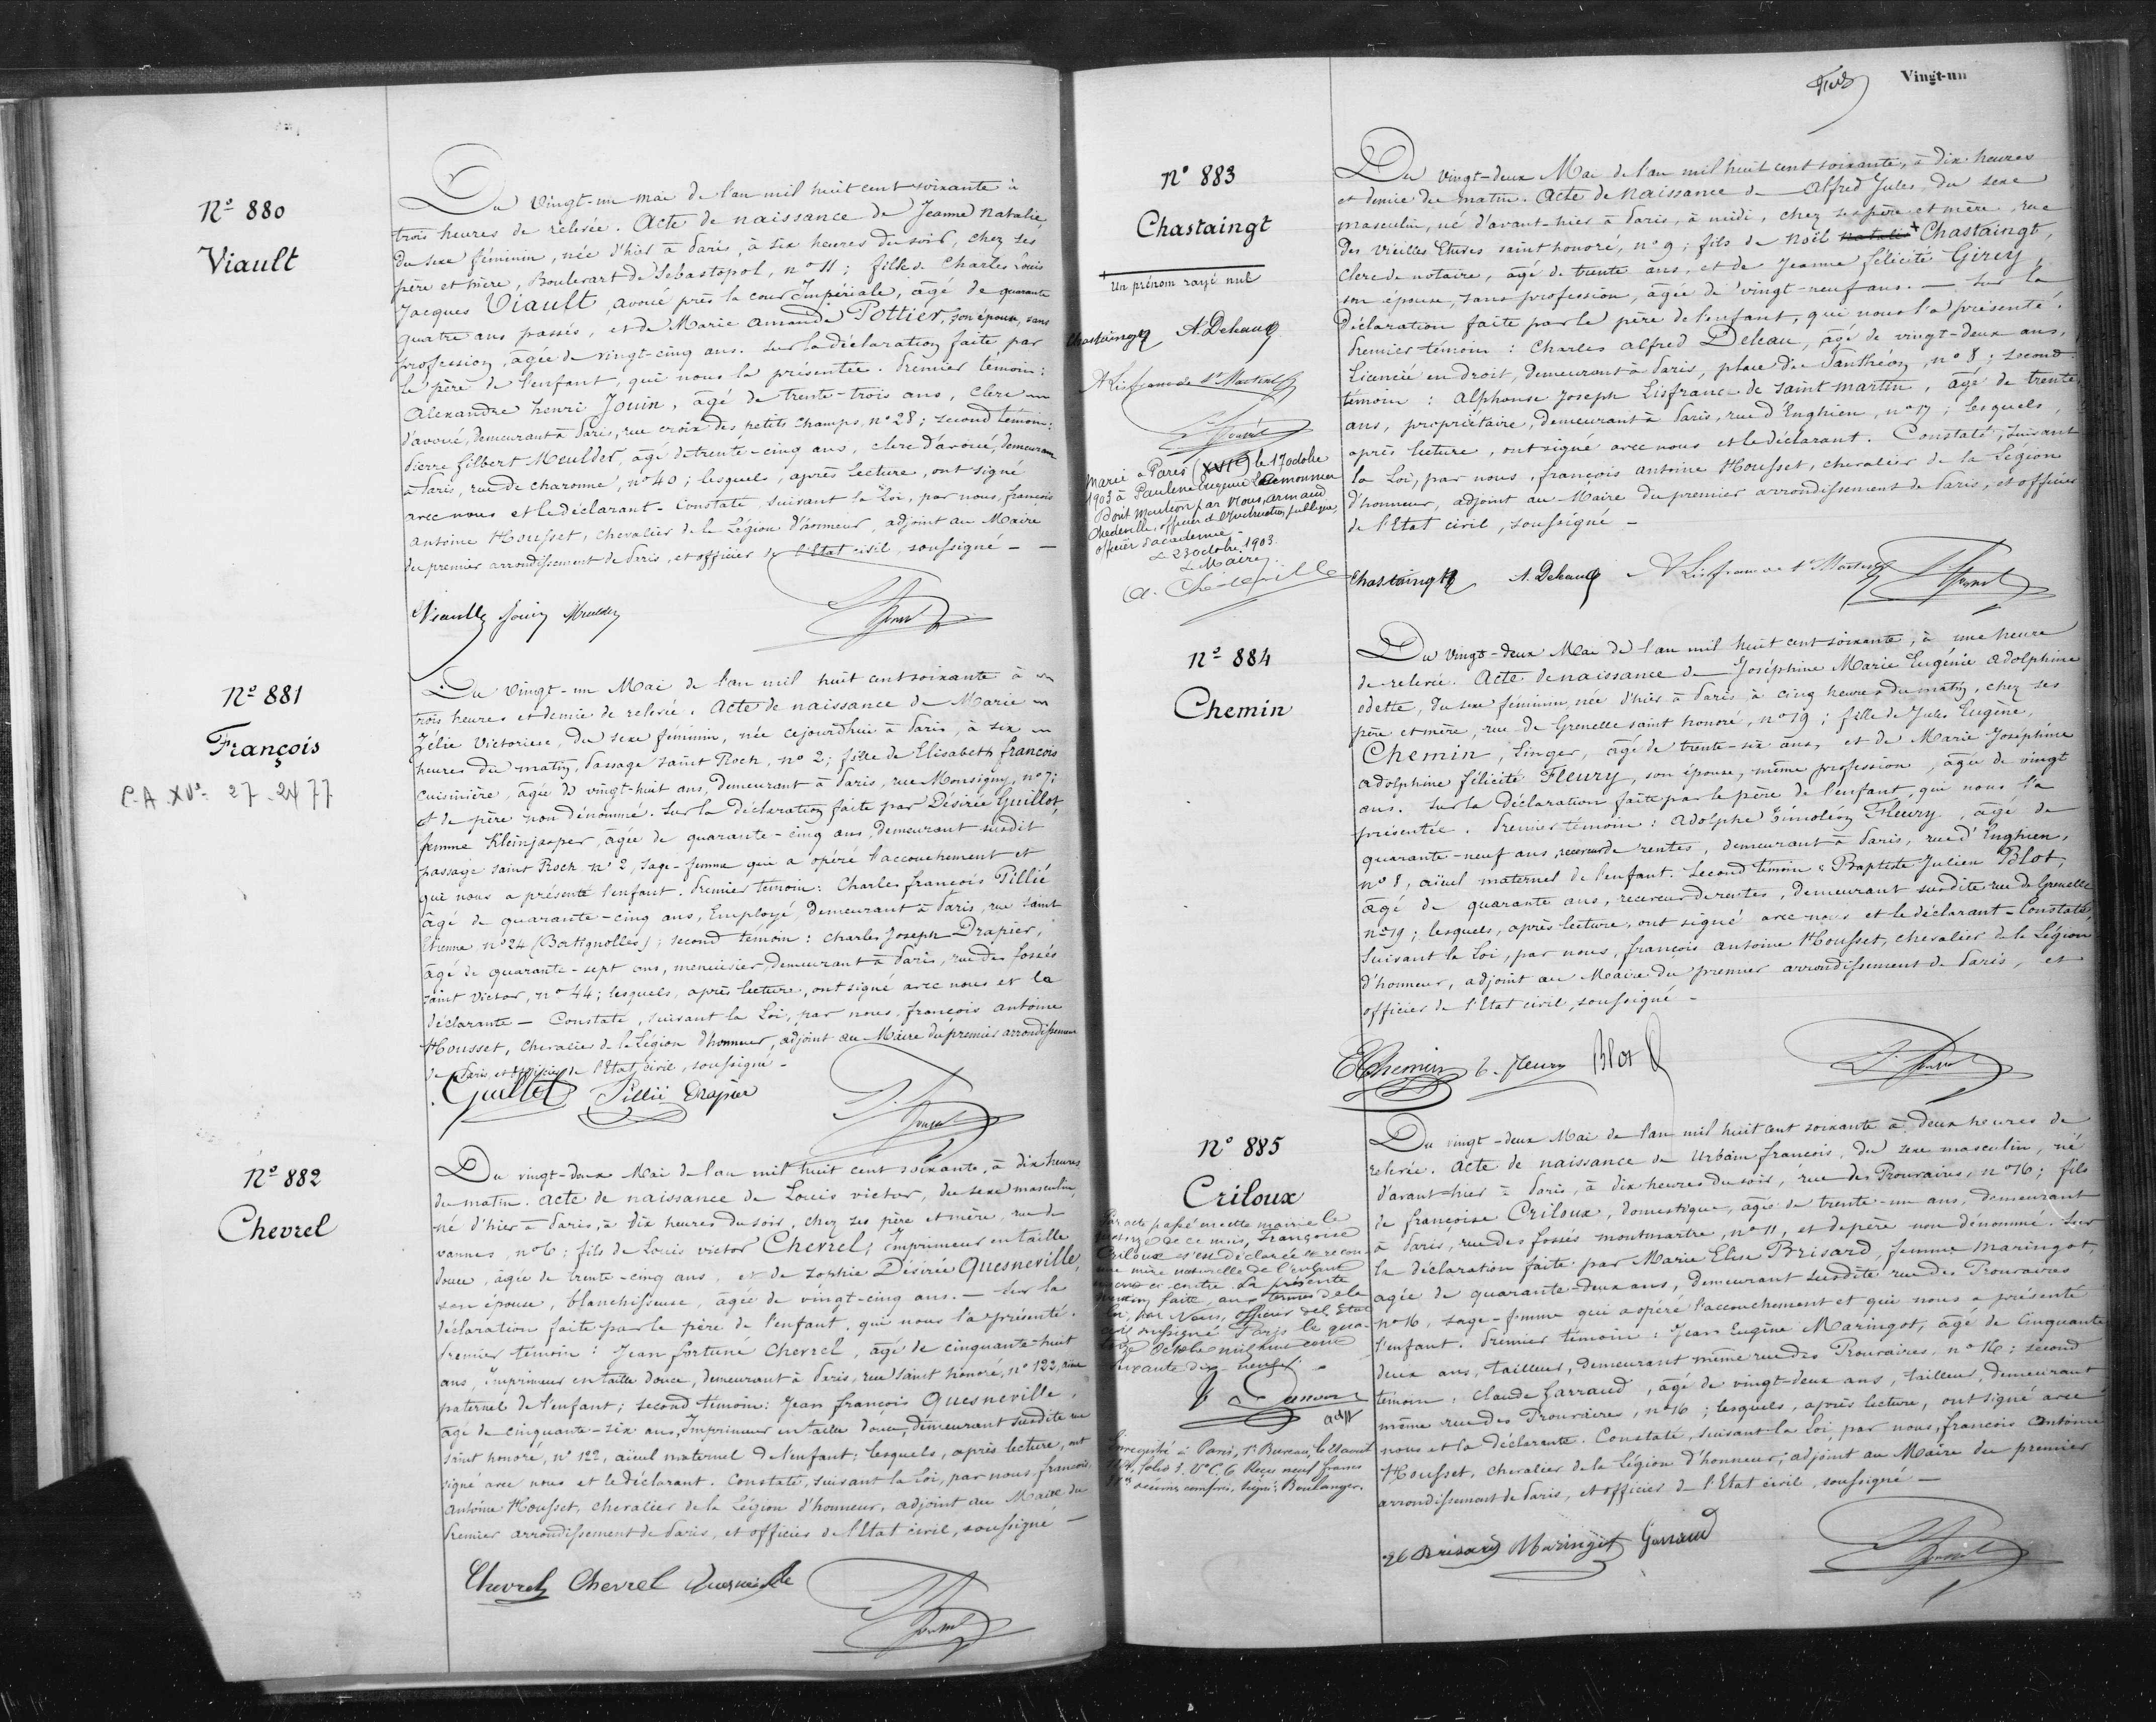 Nº 880
Viault
Du Vingt-un mai de l'an mil huit cent soixante à
trois heures de relevée. Acte de naissance de Jeanne Natalie,
du sexe féminin, née d'hier à Paris, à six heures du soir, chez ses
père et mère, Boulevart de Sebastopol, nº 11; fille de Charles Louis
Jacques Viault, avoué près la cour Impériale, âgé de quarante
quatre ans passés, et de Marie Amanda Pottier, son épouse, sans
profession, âgée de vingt-cinq ans. Sur la déclaration faite par
le père de l'enfant, qui nous la présentée. Premier témoin:
Alexandre henri Jouin, âgé de trente-trois ans, clerc
d'avoué, demeurant à Paris, rue croix des petits champs, nº 28; second témoin:
Pierre filbert Meulder, âgé de trente-cinq ans, clerc d'avoué, demeurant
à Paris, rue de charonne, nº 40; lesquels, après lecture, ont signé
avec nous et le déclarant. Constaté, suivant la Loi, par nous, françois
antoine Housset, chevalier de la Légion d'honneur, adjoint au Maire
du premier arrondissement de Paris, et officier de l'Etat civil, soussigné -
Viault Jouin Meulder
Nº 881
François
C.A. XVe 27-2477
Du Vingt-un Mai de l'an mil huit cent soixante à
trois heures et demie de relevée. Acte de naissance de Marie
Zélie Victorine, du sexe féminin, née cejourdhui à Paris, à six
heures du matin, Passage saint Roch, nº 2; fille de Elisabeth françois
cuisinière, âgée de vingt-huit ans, demeurant à Paris, rue Monsigny, nº 7;
et de père non dénommé. Sur la déclaration faite par Désirée Guillot,
femme Kleinjasper, âgée de quarante-cinq ans, demeurant susdit
passage saint Roch nº 2, sage-femme qui a opéré l'accouchement et
qui nous a présenté l'enfant. Premier témoin: Charles françois Pillié
âgé de quarante-cinq ans, Employé, demeurant à Paris, rue saint
Etienne nº 24 (Batignolles); second témoin: Charles Joseph Drapier,
âgé de quarante-sept ans, menuisier, demeurant à Paris, rue des fossés
saint Victor, nº 44; lesquels, après lecture, ont signé avec nous et la
déclarante - Constaté, suivant la Loi, par nous, françois antoine
Housset, chevalier de la Légion d'honneur, adjoint au Maire du premier arrondissement
de Paris et officier de l'Etat civil, soussigné -
Guillot Pillié Drapier
Nº 882
Chevrel
Du vingt-deux Mai de l'an mil huit cent soixante, à dix heures
du matin. Acte de naissance de Louis victor, du sexe masculin,
né d'hier à Paris, à dix heures du soir, chez ses père et mère, rue de
vannes, nº 6; fils de Louis victor Chevrel, Imprimeur en taille
douce, âgée de trente-cinq ans, et de Zophie Désirée Quesneville,
son épouse, blanchisseuse, âgée de vingt-cinq ans. - Sur la
déclaration faite par le père de l'enfant, qui nous l'a présenté.
Premier témoin: Jean fortuné Chevrel, âgé de cinquante-huit
ans, Imprimeur en taille douce, demeurant à Paris, rue saint honoré, nº 122, aïeul
paternel de l'enfant; second témoin: Jean françois Quesneville,
âgé de cinquante-six ans, Imprimeur en taille douce, demeurant susdite rue
saint honoré, nº 122, aïeul maternel de l'enfant; lesquels, après lecture, ont
signé avec nous et le déclarant. Constaté, suivant la Loi, par nous, françois
Antoine Housset, chevalier de la Légion d'honneur, adjoint au Maire du
Premier arrondissement de Paris, et officier de l'Etat civil, soussigné -
Chevrel Chevrel Quesneville
Vingt-un
Nº 883
Chastaingt
Un prénom rayé nul
Chastaingt A. Deleau
A Lisfranc de St Martin
Marié à Paris (XVIe) le 17 octobre
1903 à Pauline Eugénie Lemonnier
Dont mention par Nous, armand
Chedeville, officier de l'Instruction publique,
officier d'académie
Le 23 octobre 1903.
Le Maire,
A. Chedeville
Du vingt-deux Mai de l'an mil huit cent soixante, à dix heures
et demie du matin. Acte de Naissance de Alfred Jules, du sexe
masculin, né d'avant-hier à Paris, à midi, chez ses père et mère, rue
des vieilles Etuves saint honoré, nº 9; fils de Noël Natali Chastaingt,
clerc de notaire, âgé de trente ans, et de Jeanne félicité Girey,
son épouse, sans profession, âgée de vingt-neuf ans. - Sur la
Déclaration faite par le père de l'enfant, qui nous l'a présenté.
Premier témoin: Charles Alfred Deleau, âgé de vingt-deux ans,
Licencié en droit, demeurant à Paris, place du Panthéon, nº 8; second
témoin: Alphonse Joseph Lisfranc de saint martin, âgé de trente
ans, propriétaire, demeurant à Paris, rue d'Enghien, nº 17; lesquels,
après lecture, ont signé avec nous et le déclarant. Constaté, suivant
la Loi, par nous, françois antoine Housset, chevalier de la Légion
d'honneur, adjoint au Maire du premier arrondissement de Paris, et officier
de l'Etat civil, soussigné -
Chastaingt A. Deleau A Lisfranc de St Martin
Nº 884
Chemin
Du Vingt-deux Mai de l'an mil huit cent soixante, à une heure
de relevée. Acte de naissance de Joséphine Marie Eugénie Adolphine
odette, du sexe féminin, née d'hier à Paris à cinq heures du matin, chez ses
père et mère, rue de Grenelle saint honoré, nº 19; fille de Jules Eugène,
Chemin, Linger, âgé de trente-six ans, et de Marie Joséphine
Adolphine félicité Fleury, son épouse, même profession, âgée de vingt
ans. Sur la déclaration faite par le père de l'enfant, qui nous l'a
présentée. Premier témoin: Adolphe Timoléon Fleury, âgé de
quarante-neuf ans, receveur de rentes, demeurant à Paris, rue d'Enghien,
nº 8, aïeul maternel de l'enfant. Second témoin: Baptiste Julien Blot,
âgé de quarante ans, receveur de rentes, demeurant susdite rue de Grenelle
nº 19; lesquels, après lecture, ont signé avec nous et le déclarant - Constaté,
suivant la Loi, par nous, françois antoine Housset, chevalier de la Légion
d'honneur, adjoint au Maire du premier arrondissement de Paris, et
officier de l'Etat civil, soussigné -
EChemin Fleury Blot
Nº 885
Criloux
Par acte passé en cette mairie le
quatorze de ce mois, Françoise
Criloux s'est déclarée et recon-
nue mère naturelle de l'enfant
inscrit ci-contre. La présente
mention faite, aux termes de la
loi, par Nous, officier de l'Etat
civil soussigné. Paris le qua-
torze octobre mil huit cent
soixante dix-neuf.
adjt
Enregistré à Paris, 1r Bureau, le
folio 3. Vº C. 6 Reçu neuf francs
décimes compris, Signé: Boulanger.
Du vingt-deux Mai de l'an mil huit cent soixante à deux heures de
relevée. Acte de naissance de Urbain françois, du sexe masculin, né
d'avant-hier à Paris, à dix heures du soir, rue des Prouvaires, nº 16; fils
de françoise Criloux, domestique, âgée de trente-un ans, demeurant
à Paris, rue des fossés montmartre, nº 11, et de père non dénommé. Sur
la déclaration faite par Marie Elise Brisard, femme Maringot,
âgée de quarante-deux ans, demeurant susdite rue des Prouvaires
nº 16, sage-femme qui a opéré l'accouchement et qui nous a présenté
l'enfant. Premier témoin: Jean Eugène Maringot, âgé de cinquante
deux ans, tailleur, demeurant même rue des Prouvaires, nº 16; second
témoin, Claude Garraud, âgé de vingt-deux ans, tailleur, demeurant
même rue des Prouvaire, nº 16; lesquels, après lecture, ont signé avec
nous et la déclarante. Constaté, suivant la Loi, par nous, françois Antoine
Housset, chevalier de la Légion d'honneur, adjoint au Maire du premier
arrondissement de Paris, et officier de l'Etat civil, soussigné -
Brisard Maringot Garraud